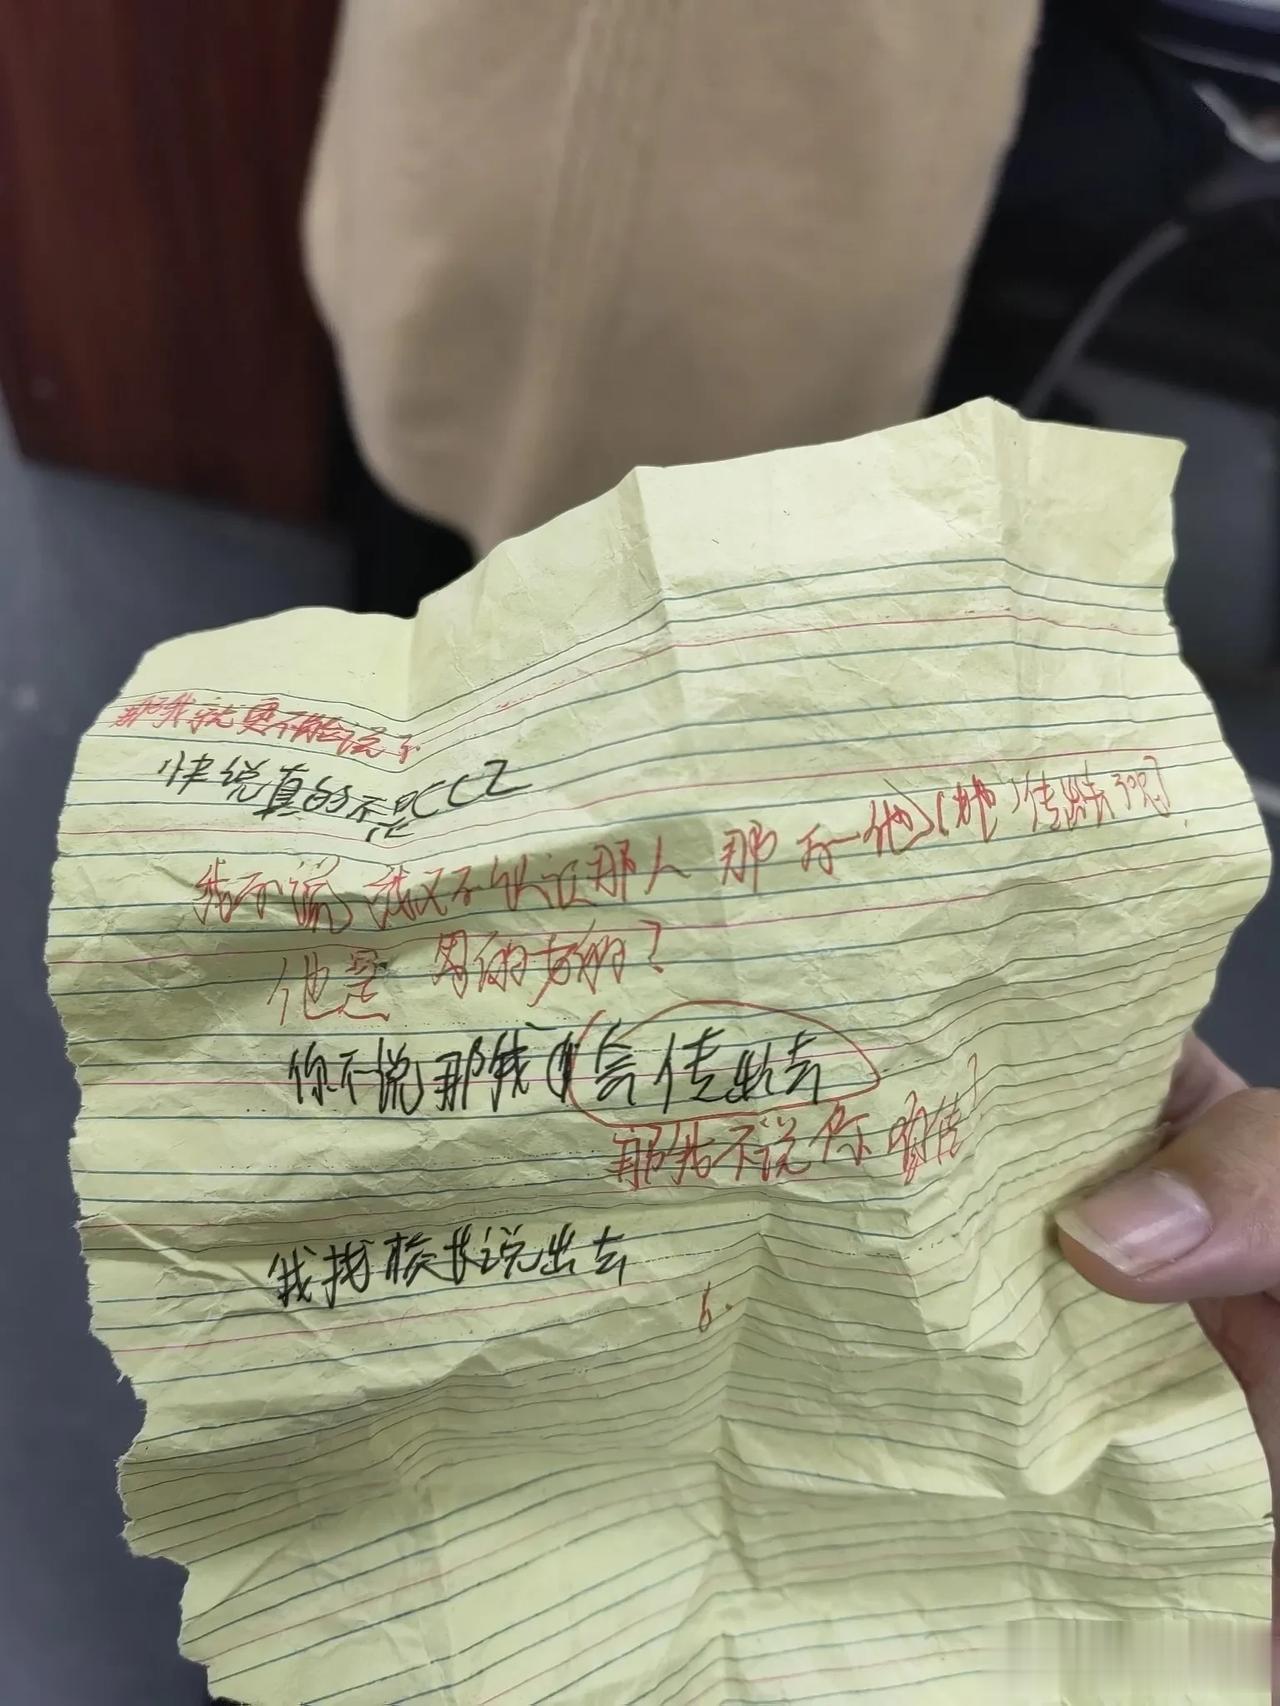 那我就更不能说了
快说真的不是CCZ
我不说 我又不认识那人 那万一他(她)传出去了呢
他是 男的女的?
你不说那我 会传出去
那我不说你咋传?
我找校长说出去
6.